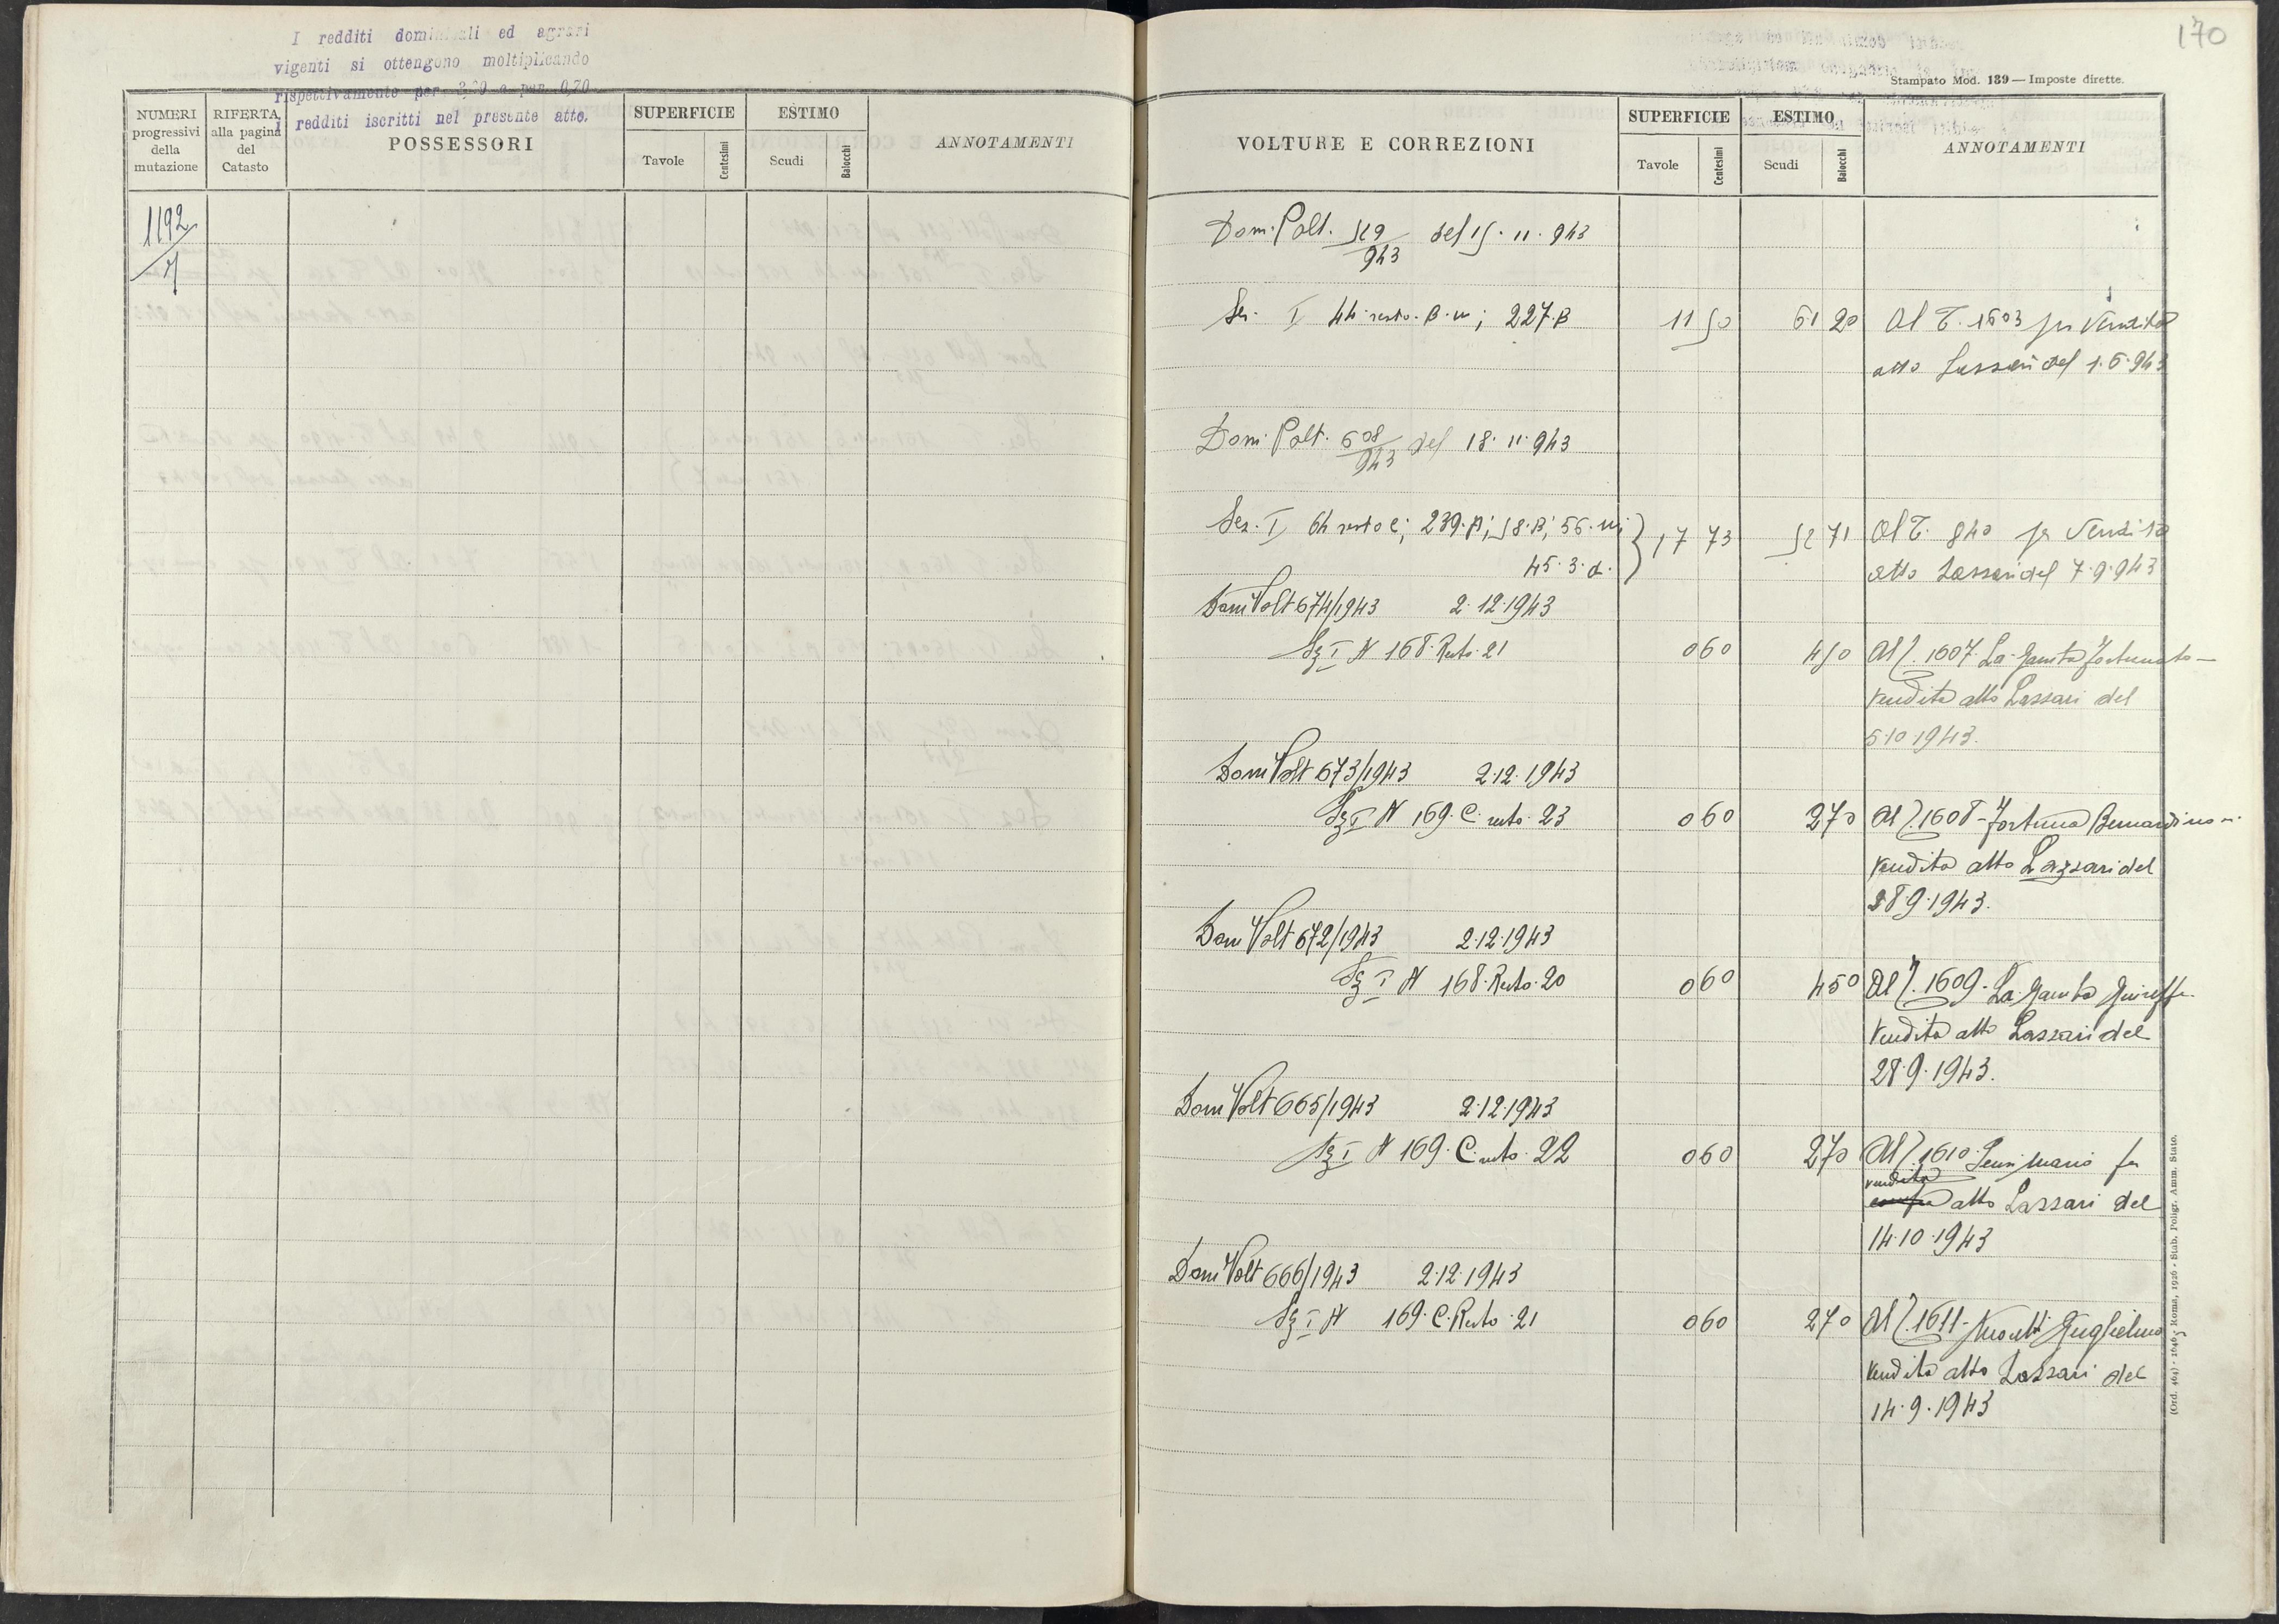 I redditi dominicali ed agrari
vigenti si ottengono moltiplicando
rispettivamente per 3,20 e per 0,70
i redditi iscritti nel presente atto.
NUMERI progressivi della mutazione
RIFERTA alla pagina del Catasto
POSSESSORI
SUPERFICIE
Tavole
Centesimi
ESTIMO
Scudi
Baiocchi
ANNOTAMENTI
1192/7
170
Stampato Mod. 139 — Imposte dirette.
VOLTURE E CORREZIONI
SUPERFICIE
Tavole
Centesimi
ESTIMO
Scudi
Baiocchi
ANNOTAMENTI
Dom. Volt. 529/943 del 15. 11. 943
Sez. I 44 resto. B. ; 227.B 11 50 61 20 Al T. 1603 per Vendita
atto Lazzari del 1.6.943
Dom. Volt. 608/943 del 18. 11. 943
Sez. I 64 resto C; 239.B; 58.B; 56. 17 73 52 71 Al T. 840 per Vendita
45.3.a. atto Lazzari del 7.9.943
Dom Volt 674/1943 2.12.1943
Sez I N 168. Resto. 21 0 60 4 50 Al T. 1607. La Gamba Fortunato —
Vendita atto Lazzari del
5.10.1943.
Dom Volt 673/1943 2.12.1943
Sez I N 169. C. resto. 23 0 60 2 70 Al T. 1608 - Fortuna Bernardino
Vendita atto Lazzari del
28.9.1943.
Dom Volt 672/1943 2.12.1943
Sez I N 168. Resto. 20 0 60 4 50 Al T. 1609. La Gamba Giuseppe
Vendita atto Lazzari del
28.9.1943.
Dom Volt 665/1943 2.12.1943
Sez I N 169. C. resto. 22 0 60 2 70 Al T. 1610 Mario per
vendita
atto Lazzari del
14.10.1943
Dom Volt 666/1943 2.12.1943
Sez I N 169. C. Resto. 21 0 60 2 70 Al T. 1611 - Guglielmo
Vendita atto Lazzari del
14.9.1943
Roma, 1926 - Stab. Poligr. Amm. Stato.